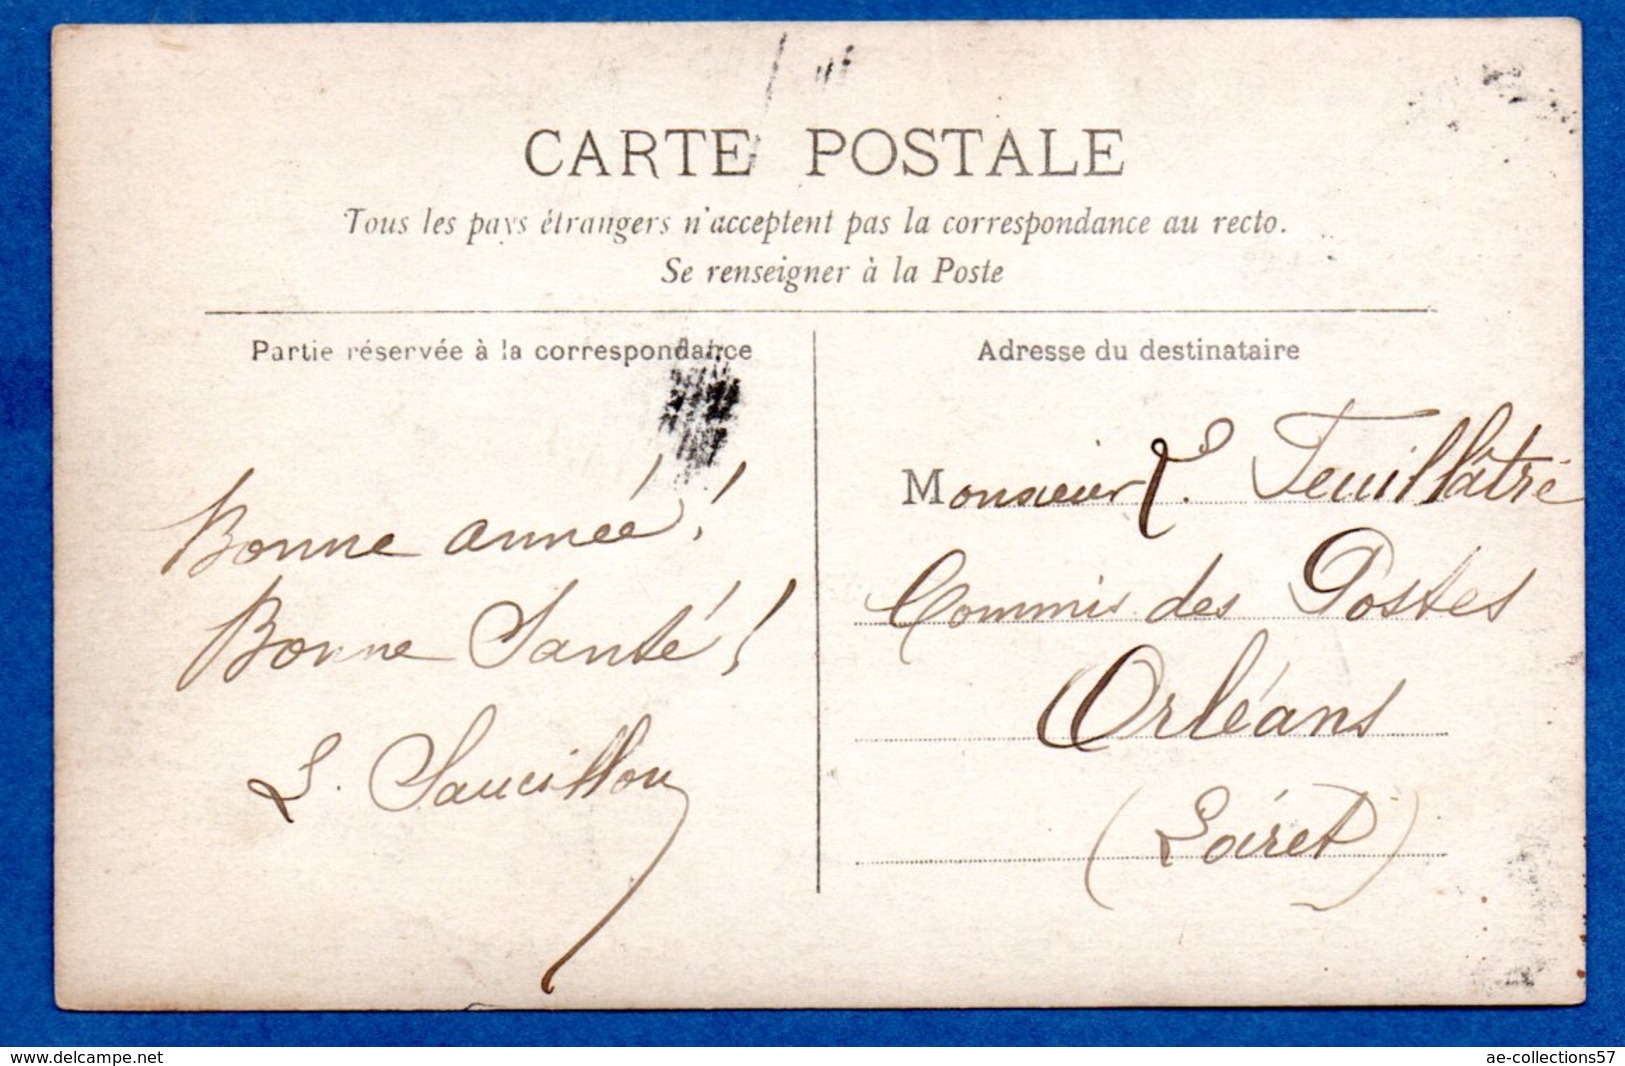 CARTE POSTALE
Tous les pays étrangers n'acceptent pas la correspondance au recto.
Se renseigner à la Poste
Partie réservée à la correspondance
Adresse du destinataire
Bonne année!
Bonne Santé!
L. Saucillon
Monsieur Feuillâtre
Commis des Postes
Orléans
(Loiret)
www.delcampe.net
ae-collections57